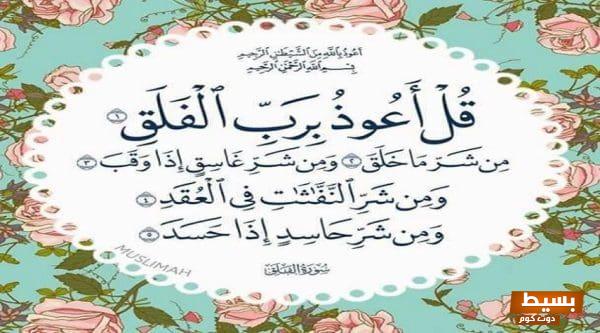 أعوذ بالله من الشيطن الرجيم
بسم الله الرحمن الرحيم
قُلْ أَعُوذُ بِرَبِّ الْفَلَقِ ١
مِن شَرِّ مَا خَلَقَ ٢ وَمِن شَرِّ غَاسِقٍ إِذَا وَقَبَ ٣
وَمِن شَرِّ النَّفَّٰثَٰتِ فِي الْعُقَدِ ٤
وَمِن شَرِّ حَاسِدٍ إِذَا حَسَدَ ٥
سورة الفلق
MUSLIMAH
بسيط
دوت كوم